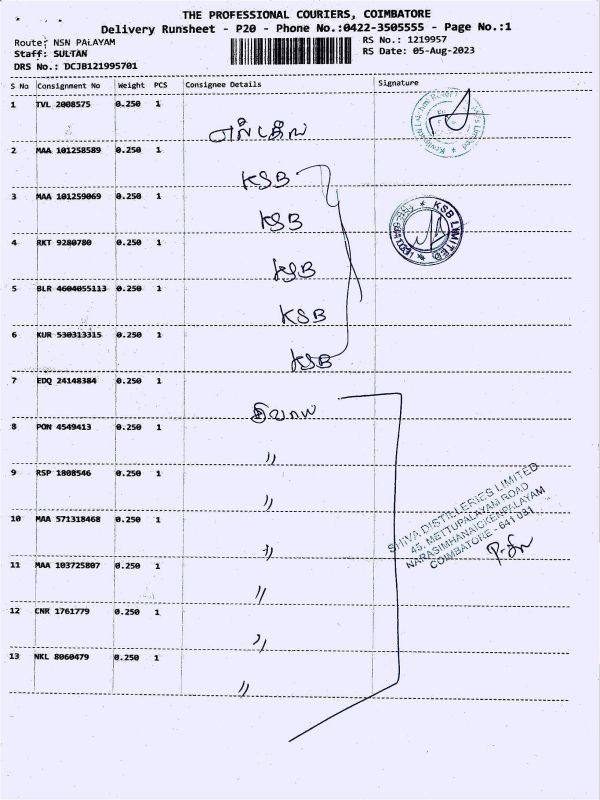 THE PROFESSIONAL COURIERS, COIMBATORE
Delivery Runsheet - P20 - Phone No.:0422-3505555 - Page No.:1
Route: NSN PALAYAM
RS No.: 1219957
Staff: SULTAN
RS Date: 05-Aug-2023
DRS No.: DCJB121995701
S No Consignment No Weight PCS Consignee Details Signature
1 TVL 2008575 0.250 1
2 MAA 101258589 0.250 1
KSB
3 MAA 101259069 0.250 1
KSB
KSB LIMITED
4 RKT 9280780 0.250 1
KSB
5 BLR 4604055113 0.250 1
KSB
6 KUR 530313315 0.250 1
KSB
7 EDQ 24148384 0.250 1
8 PON 4549413 0.250 1
"
9 RSP 1808546 0.250 1
"
10 MAA 571318468 0.250 1
"
SHIVA DISTILLERIES LIMITED
45, METTUPALAYAM ROAD
NARASIMHANAICKENPALAYAM
COIMBATORE - 641 031
11 MAA 103725807 0.250 1
"
12 CNR 1761779 0.250 1
"
13 NKL 8060479 0.250 1
"